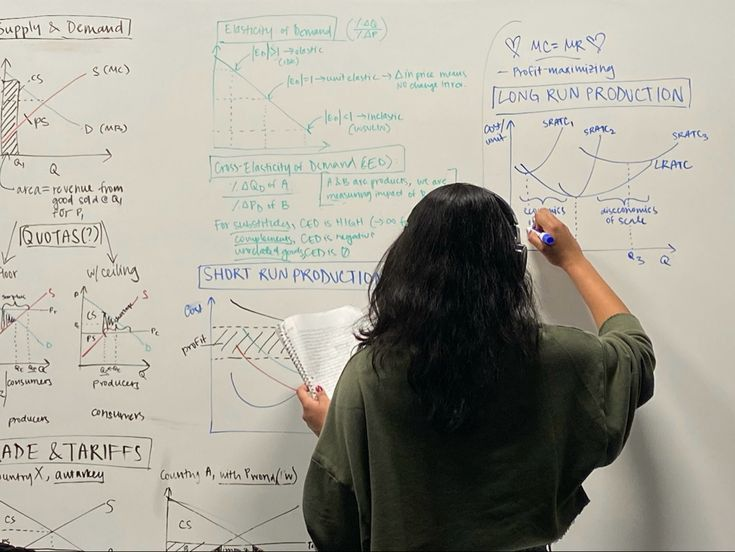 Supply & Demand
CS
S (MC)
PS
D (MB)
Q₁
Q
area = revenue from
good sold @ Q₁
for P₁
QUOTAS(?)
floor
w/ ceiling
S
D
consumers
producers
CS
PS
S
D
Q
producers
consumers
TRADE & TARIFFS
Country X, autarkey
CS
S
Elasticity of Demand (%ΔQ/%ΔP)
|ED|>1 → elastic
|ED|=1 → unit elastic → Δ in price means
no change in rev.
|ED|<1 → inelastic
(INSULIN)
Cross-Elasticity of Demand (CED):
%ΔQD of A
%ΔPD of B
A & B are products, we are
measuring impact of
For substitutes, CED is HIGH (→∞
complements, CED is negative
unrelated goods, CED is 0
SHORT RUN PRODUCTION
Cost
profit
Country A, with Pworld
CS
♡ MC = MR ♡
- Profit-maximizing
LONG RUN PRODUCTION
Cost/
unit
SRATC₁
SRATC₂
SRATC₃
LRATC
diseconomies
of scale
Q₃
Q